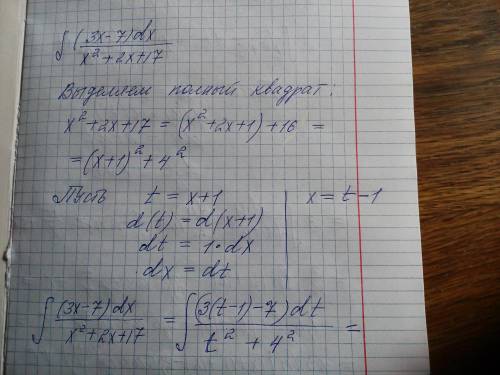 ∫ (3x-7)dx / x² + 2x + 17
Выделяем полный квадрат:
x² + 2x + 17 = (x² + 2x + 1) + 16 =
= (x+1)² + 4²
Пусть t = x+1 | x = t - 1
d(t) = d(x+1)
dt = 1·dx
dx = dt
∫ (3x-7)dx / x² + 2x + 17 = ∫ (3(t-1)-7)dt / t² + 4² =